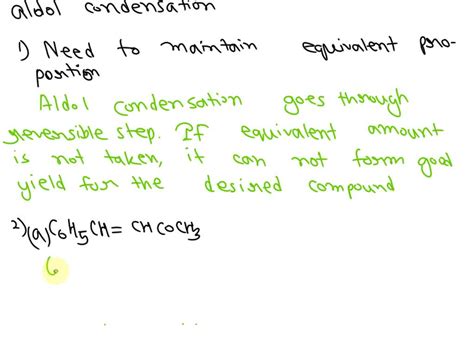 aldol condensation
1) Need to maintain equivalent pro-
position
Aldol condensation goes through
reversible step. If equivalent amount
is not taken, it can not form good
yield for the desired compound
2) (a) C6H5CH = CHCOCH3